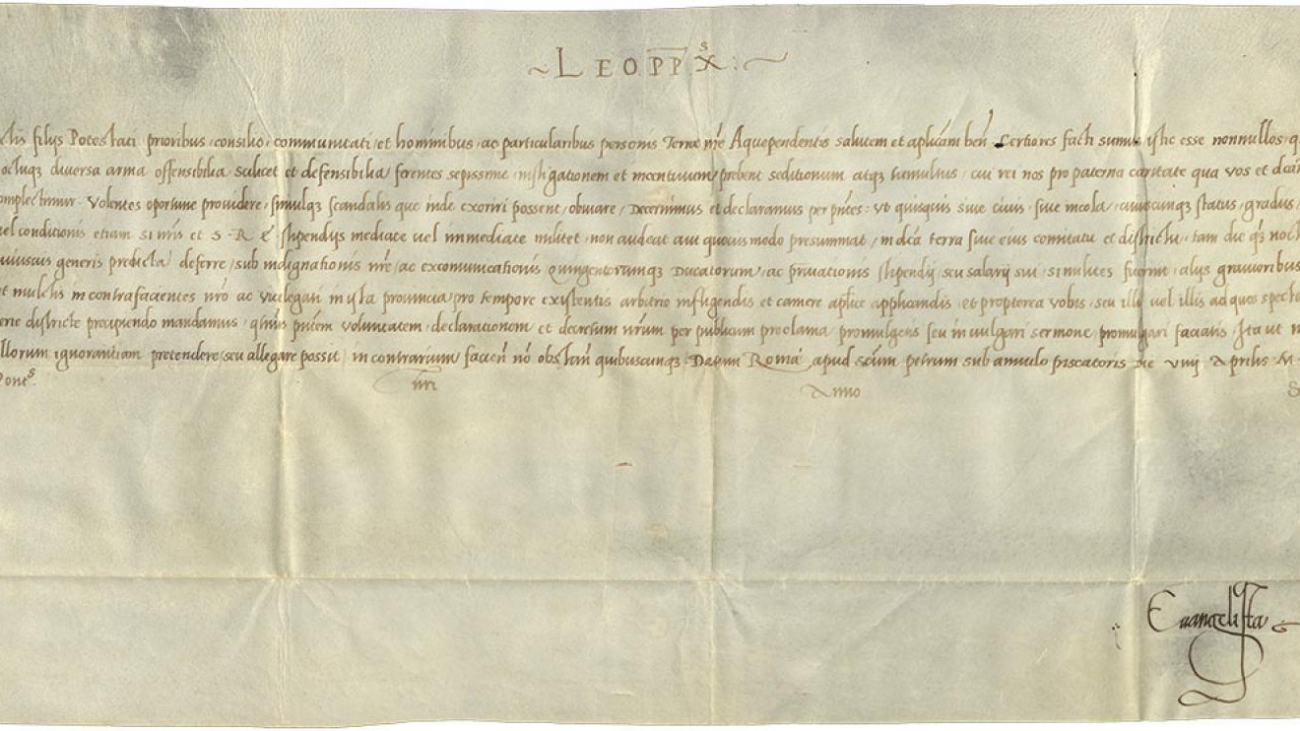 ~ LEO PP X^s : ~
filijs Potestati prioribus, consilio, communitati, et hominibus, ac particularibus personis Terrae nrē Aquependentis salutem et aplicam ben Certiores facti sumus istic esse nonnullos, q
noctuq3 diuersa arma offensibilia scilicet et defensibilia ferentes sepissime, instigationem et prebent seditionum atq3 tumultus, cui rei nos pro paterna caritate qua vos et
complectimur, Volentes oportune prouidere, simulq3 scandalis que inde exoriri possent, obuiare, Decernimus et declaramus per pn̄tes: Vt quisquis siue ciuis, siue incola, cuiuscunq3 status, gradus,
uel conditionis etiam si nr̄is et S. R. E. stipendijs mediate uel inmediate militet, non audeat aut quouis modo presummat, in dicta terra siue eius comitatu et districtu, tam die q3 noctu
cuiuscunq3 generis predicta deferre, sub indignationis nrē, ac excomunicationis quingentorumq3 Ducatorum, ac priuationis stipendij, seu salarij sui, si milites fuerint, alijs grauioribus
et mulctis in contrafacientes nr̄o ac Vicelegati in ista prouincia pro tempore existentis arbitrio infligendis et camere aplice applicandis, et propterea vobis, seu illi uel illis ad quos specta
serie districte precipiendo mandamus, voluntatem, declarationem et decretum nr̄um per publicum proclama, promulgetis seu in uulgari sermone promulgari faciatis, Ita ut n
illorum ignorantiam pretendere, seu allegare possit, in contrarium facien̄ nō obstan̄ quibuscunq3. Datum Romae apud sctum petrum sub annulo piscatoris die viiij Aprilis M.
Pont^s. iiri Anno
Euangelista